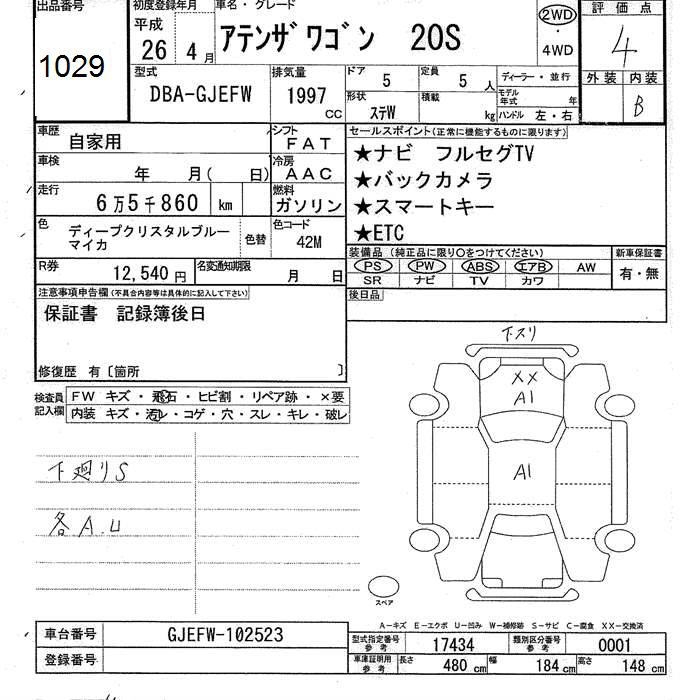 出品番号
1029
初度登録年月
平成
26年 4月
車名・グレード
アテンザ ワゴン 20S
2WD
・
4WD
評価点
4
外装 内装
B
型式
DBA-GJEFW
排気量
1997 CC
ドア 5
定員 5人
形状 ステW
積載 kg
ディーラー・並行
モデル年式 年
ハンドル 左・右
車歴 自家用
シフト FAT
車検 年 月( 日)
冷房 AAC
走行 6万5千860 km
燃料 ガソリン
色 ディープクリスタルブルーマイカ
色替
色コード 42M
R券 12,540円
名変通知期限 月 日
セールスポイント(正常に機能するものに限ります)
★ナビ フルセグTV
★バックカメラ
★スマートキー
★ETC
装備品 (純正品に限り○をつけてください)
PS PW ABS エアB AW
SR ナビ TV カワ
新車保証書
有・無
後日品
注意事項申告欄(不具合内容等は具体的に記入して下さい)
保証書 記録簿後日
修復歴 有〔箇所 〕
検査員記入欄
FW キズ・飛石・ヒビ割・リペア跡・×要
内装 キズ・汚レ・コゲ・穴・スレ・キレ・破レ
下廻りS
各A.U
下スリ
XX
A1
A1
スペア
A-キズ E-エクボ U-凹み W-補修跡 S-サビ C-腐食 XX-交換済
車台番号 GJEFW-102523
登録番号
型式指定番号 参考 17434
類別区分番号 参考 0001
車庫証明用 参考 長さ 480cm 幅 184cm 高さ 148cm